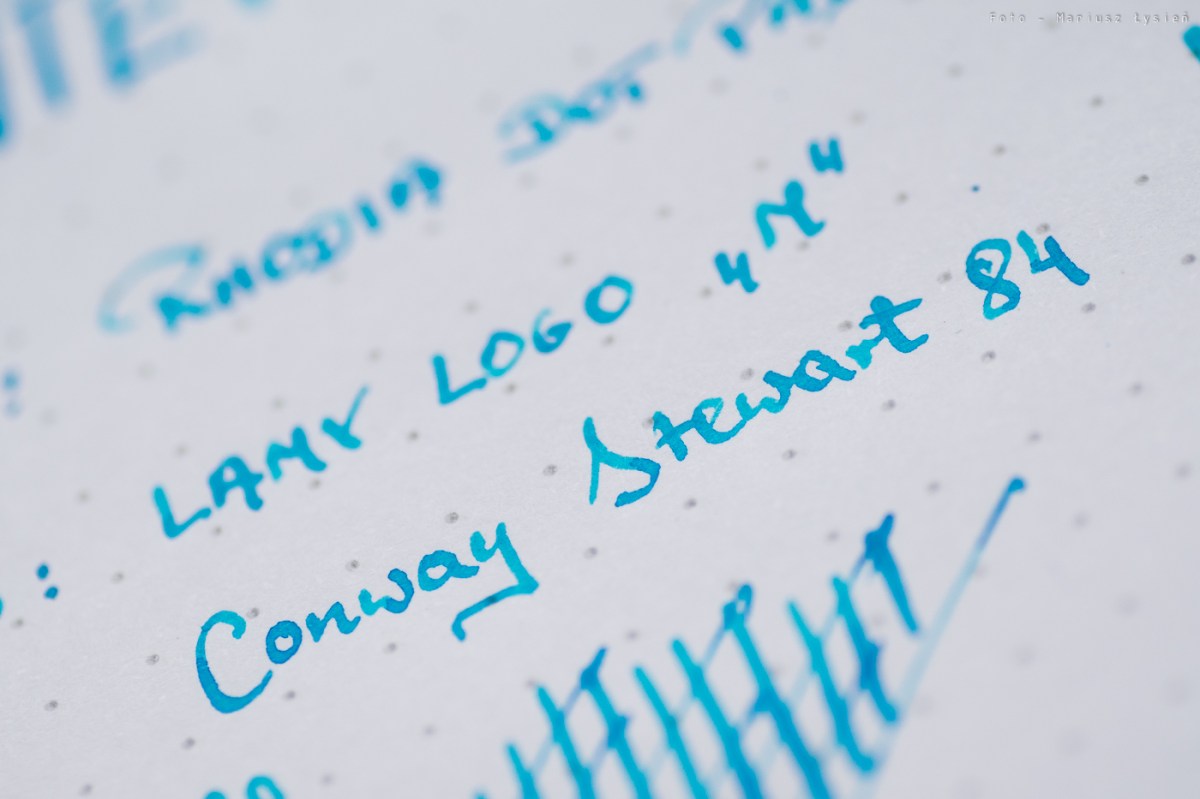 Foto - Mariusz Łysień
RHODIA DOT
LAMY LOGO "M"
:
Conway Stewart 84